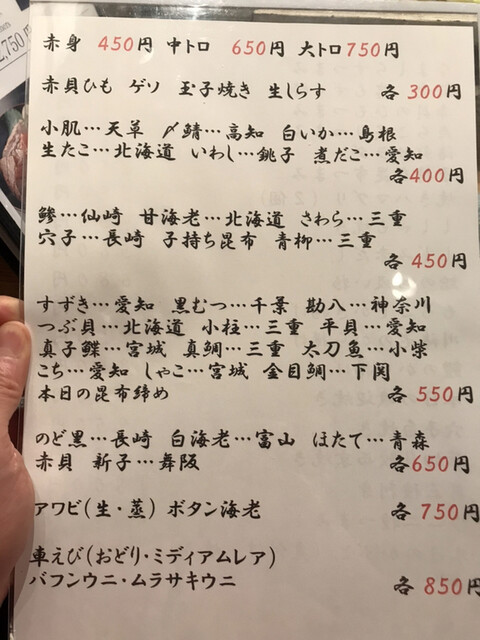 2,750円
赤身 450円 中トロ 650円 大トロ750円
赤貝ひも ゲソ 玉子焼き 生しらす 各300円
小肌…天草 〆鯖…高知 白いか…島根
生たこ…北海道 いわし…銚子 煮だこ…愛知
各400円
鰺…仙崎 甘海老…北海道 さわら…三重
穴子…長崎 子持ち昆布 青柳…三重
各450円
すずき…愛知 黒むつ…千葉 勘八…神奈川
つぶ貝…北海道 小柱…三重 平貝…愛知
真子鰈…宮城 真鯛…三重 太刀魚…小柴
こち…愛知 しゃこ…宮城 金目鯛…下関
本日の昆布締め 各550円
のど黒…長崎 白海老…富山 ほたて…青森
赤貝 新子…舞阪 各650円
アワビ(生・蒸) ボタン海老 各750円
車えび(おどり・ミディアムレア)
バフンウニ・ムラサキウニ 各850円